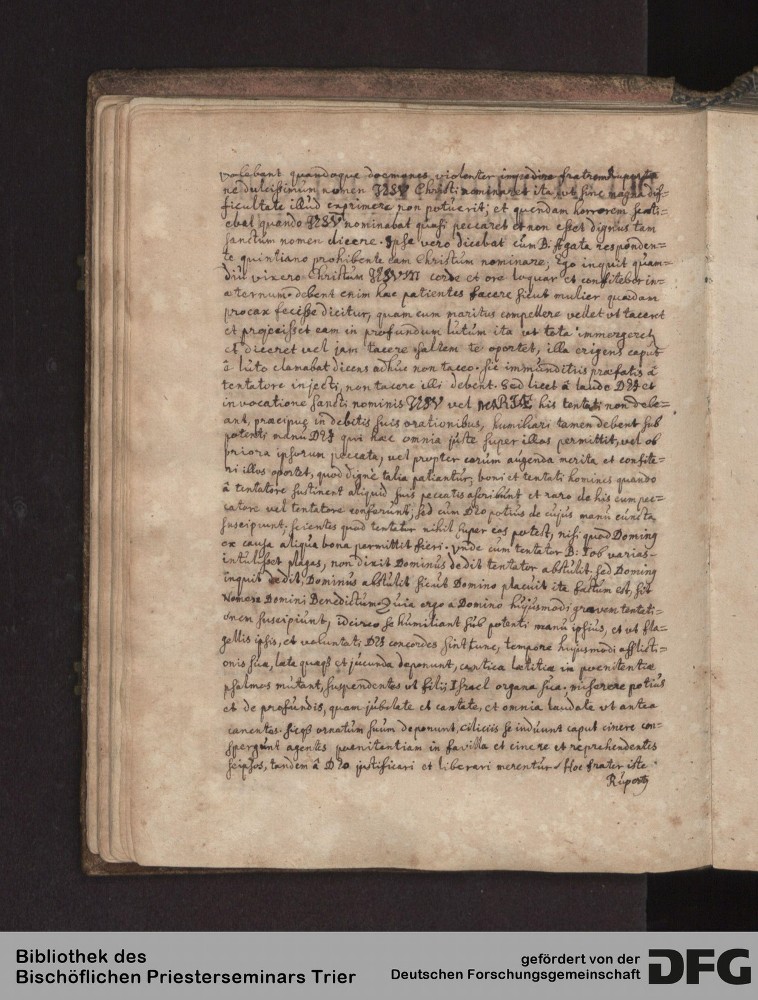 volebant quandoque daemones violenter impedire fratrem Rupertu
ne dulcissimum nomen JESV Christi nominaret ita ut sine magna dif=
ficultate illud exprimere non potuerit; et quendam horrorem senti=
ebat quando JESV nominabat quasi peccaret et non esset dignus tam
sanctum nomen dicere. Ipse vero dicebat cum B. Agata responden=
te quintiano prohibente eam Christum nominare; Ego inquit quam=
diu vixero Christum JESVM corde et ore loquar et confitebor in=
aeternum debent enim hac patientes facere sicut mulier quaedam
procax fecisse dicitur, quam cum maritus compellere vellet ut taceret
et projecisset eam in profundum lutum ita ut tota immergeret
et diceret vel jam tacere saltem te oportet, illa erigens caput
à luto clamabat dicens adhuc non taceo. Sic immunditiis praefatis à
tentatore injecti, non tacere illi debent. Sed licet à laude DEI et
invocatione sancti nominis JESV vel MARIAE his tentati non debe=
ant, praecipue in debitis suis orationibus, humiliari tamen debent sub
potenti manu DEI qui haec omnia juste super illos permittit, vel ob
priora ipsorum peccata, vel propter eorum augenda merita et confite=
ri illos oportet, quod digne talia patiantur; boni et tentati homines quando
à tentatore sustinent aliquid suis peccatis ascribunt et raro de his cum pec=
catore vel tentatore conferunt, sed cum DEO potius de cujus manu cuncta
suscipiunt. scientes quod tentator nihil super eos potest, nisi quod Doming
ex causa aliqua bona permittit fieri. Vnde cum tentator B: Iob varias
intulisset plagas, non dixit Dominus dedit tentator abstulit. sed Doming
inquit dedit, Dominus abstulit sicut Domino placuit ita factum est, sit
Nomen Domini Benedictum. Quia ergo a Domino hujusmodi gravem tentati=
onem suscipiunt, idcirco se humiliant sub potenti manu ipsius, et ut fla=
gellis ipsis, et voluntati DEI concordes sint tunc, tempore hujusmodi afflicti=
onis sua, laeta quaeq3 et jucunda deponunt, cantica laetitiae in poenitentiae
psalmos mutant, suspendentes ut filij Israel organa sua. miserere potius
et de profundis, quam jubilate et cantate, et omnia laudate ut antea
canentes. sicq3 ornatum suum deponunt, ciliciis se induunt caput cinere con=
spergunt agentes poenitentiam in favilla et cinere et reprehendentes
seipsos, tandem à DEO justificari et liberari merentur. Hoc frater iste
Ruperty
Bibliothek des
Bischöflichen Priesterseminars Trier
gefördert von der
Deutschen Forschungsgemeinschaft
DFG